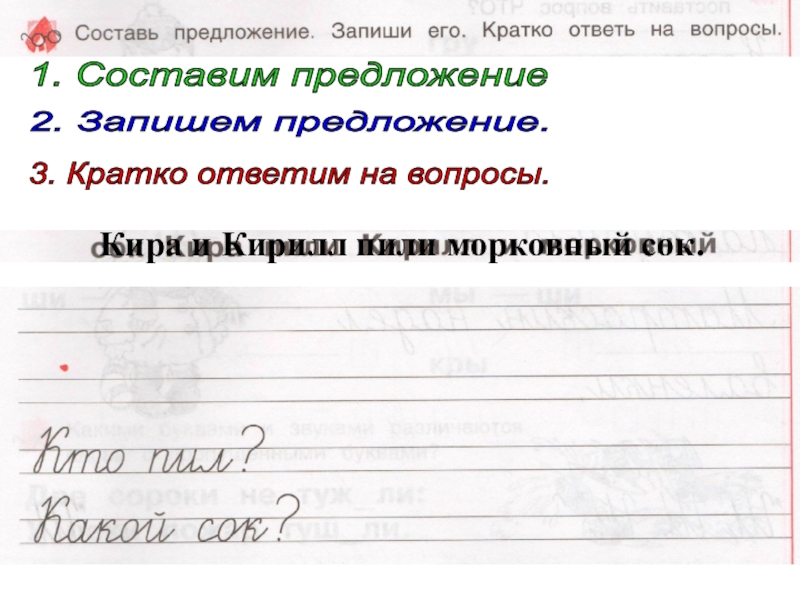 Составь предложение. Запиши его. Кратко ответь на вопросы.
1. Составим предложение
2. Запишем предложение.
3. Кратко ответим на вопросы.
Кира и Кирилл пили морковный сок.
Кто пил?
Какой сок?